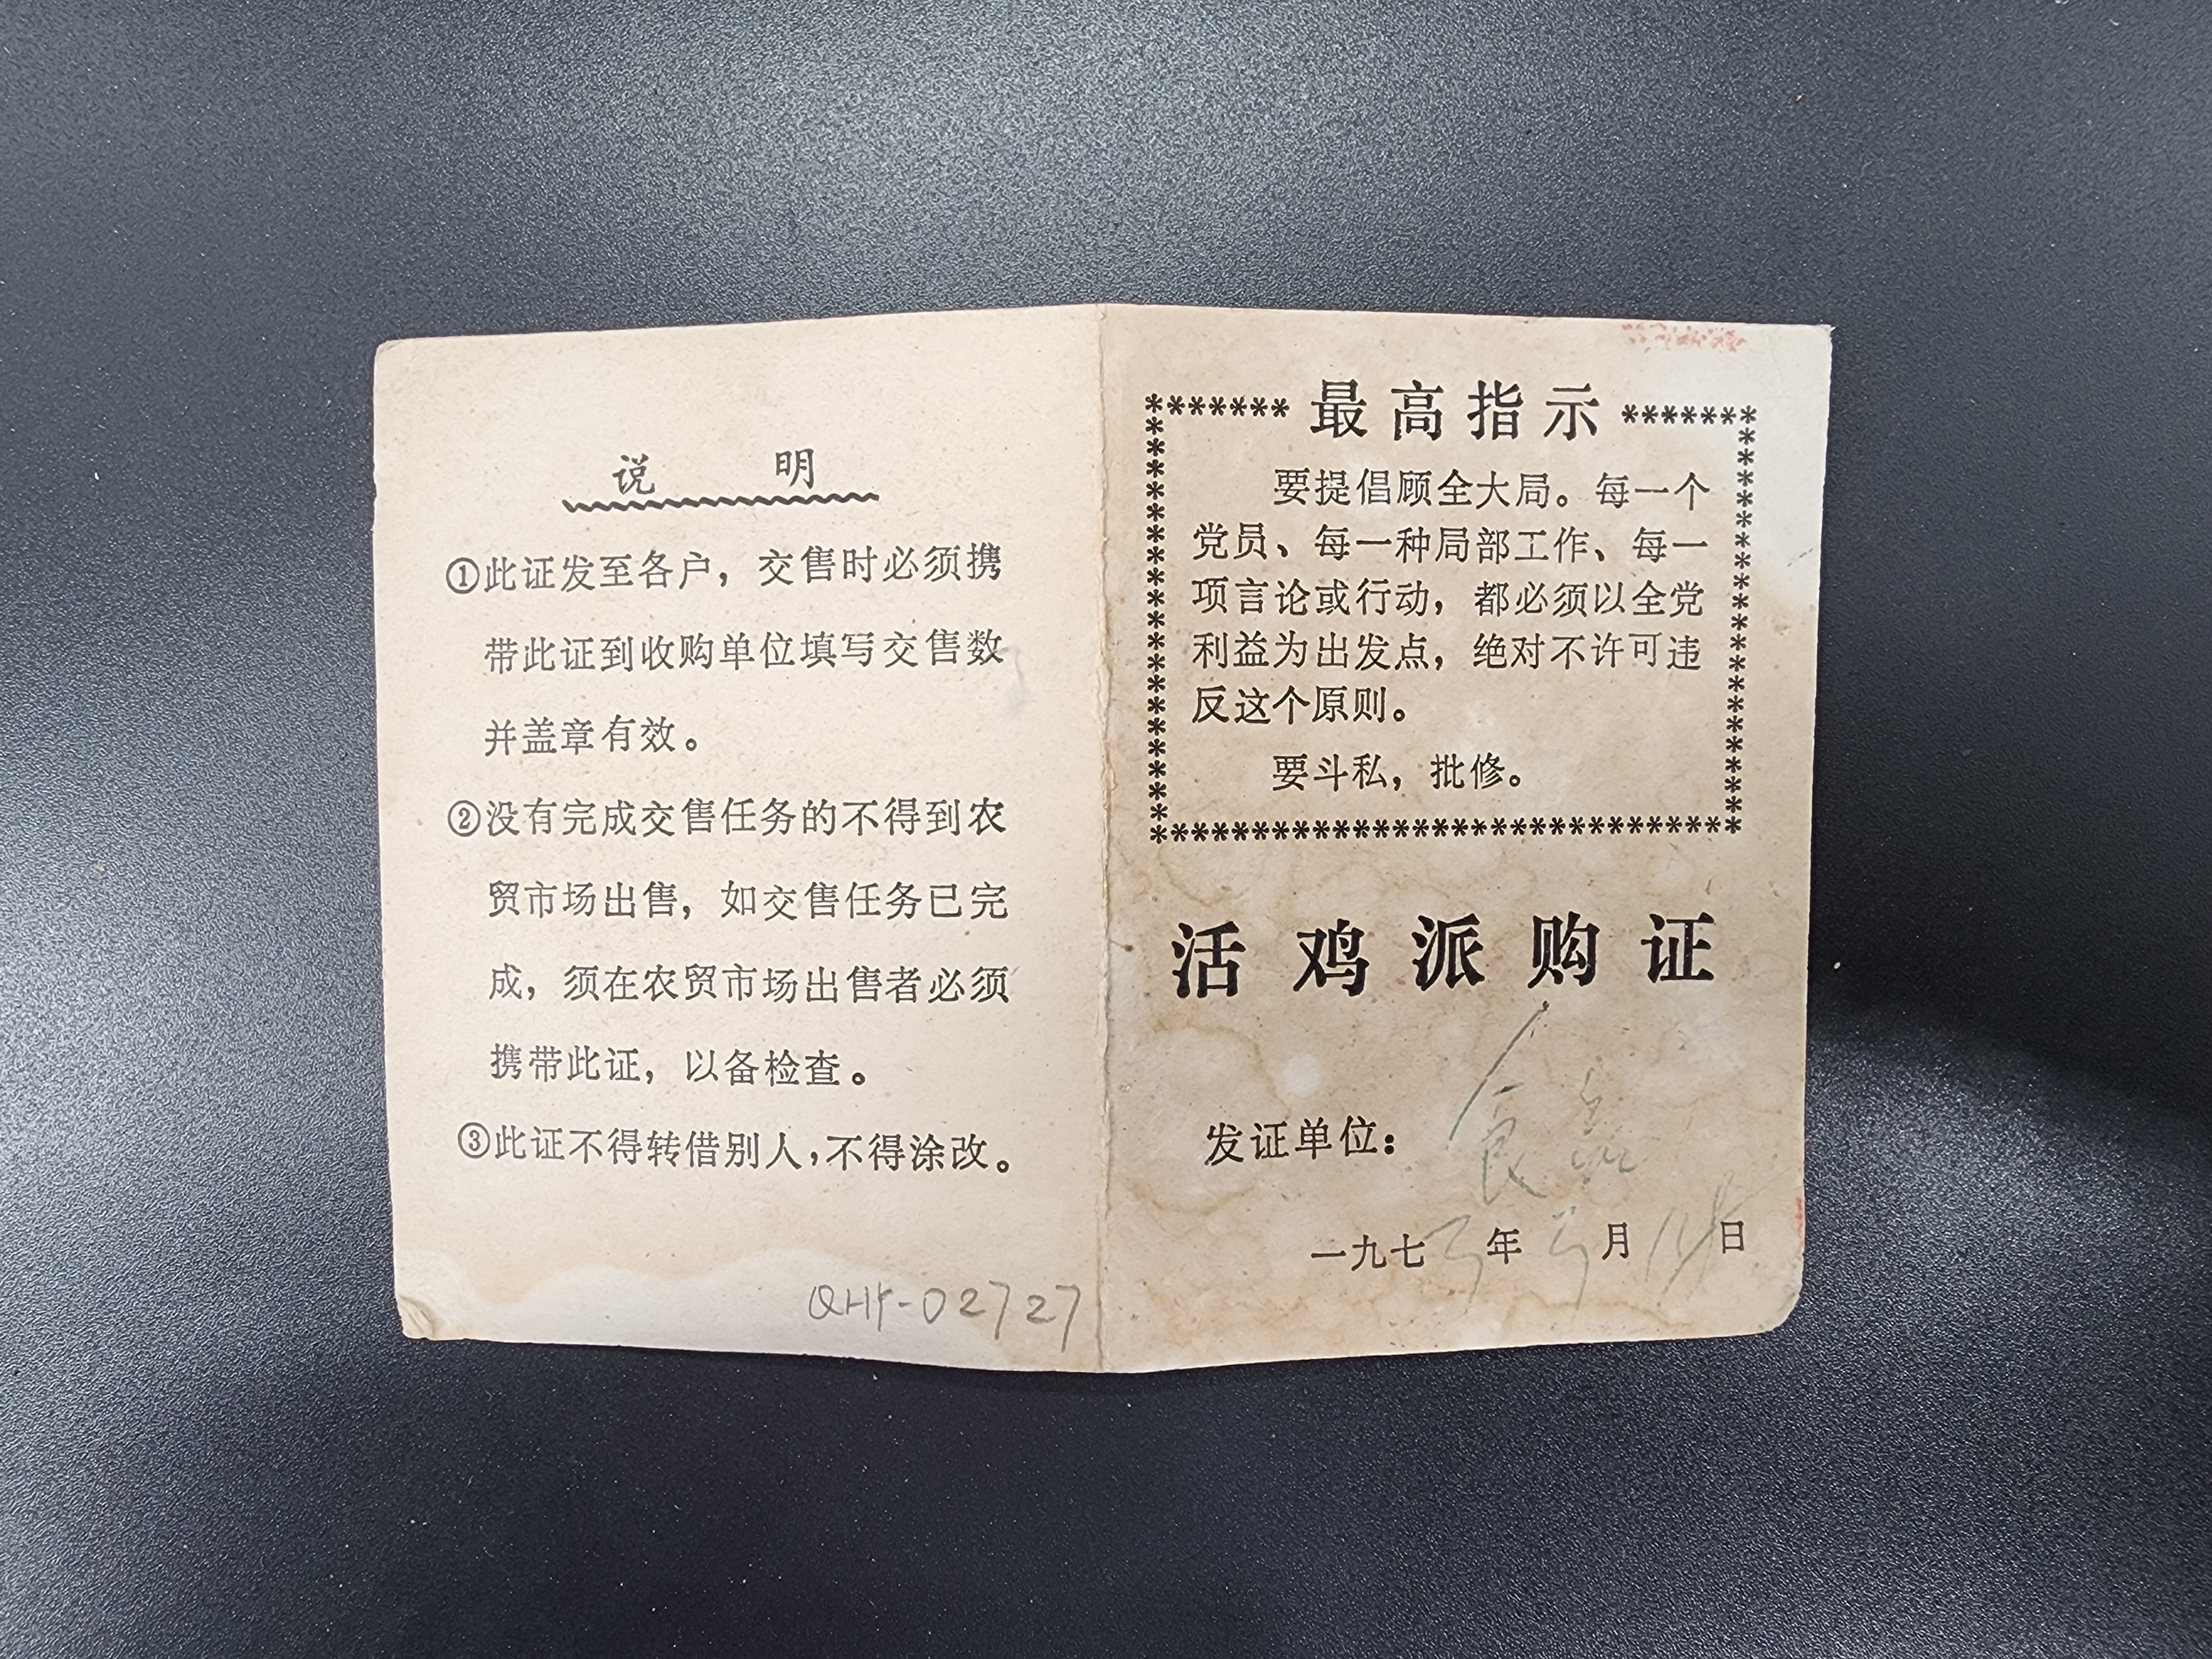 说 明
①此证发至各户，交售时必须携
带此证到收购单位填写交售数
并盖章有效。
②没有完成交售任务的不得到农
贸市场出售，如交售任务已完
成，须在农贸市场出售者必须
携带此证，以备检查。
③此证不得转借别人，不得涂改。
QHY-02727
最高指示
要提倡顾全大局。每一个
党员、每一种局部工作、每一
项言论或行动，都必须以全党
利益为出发点，绝对不许可违
反这个原则。
要斗私，批修。
活鸡派购证
发证单位：食品
一九七 年 月 日